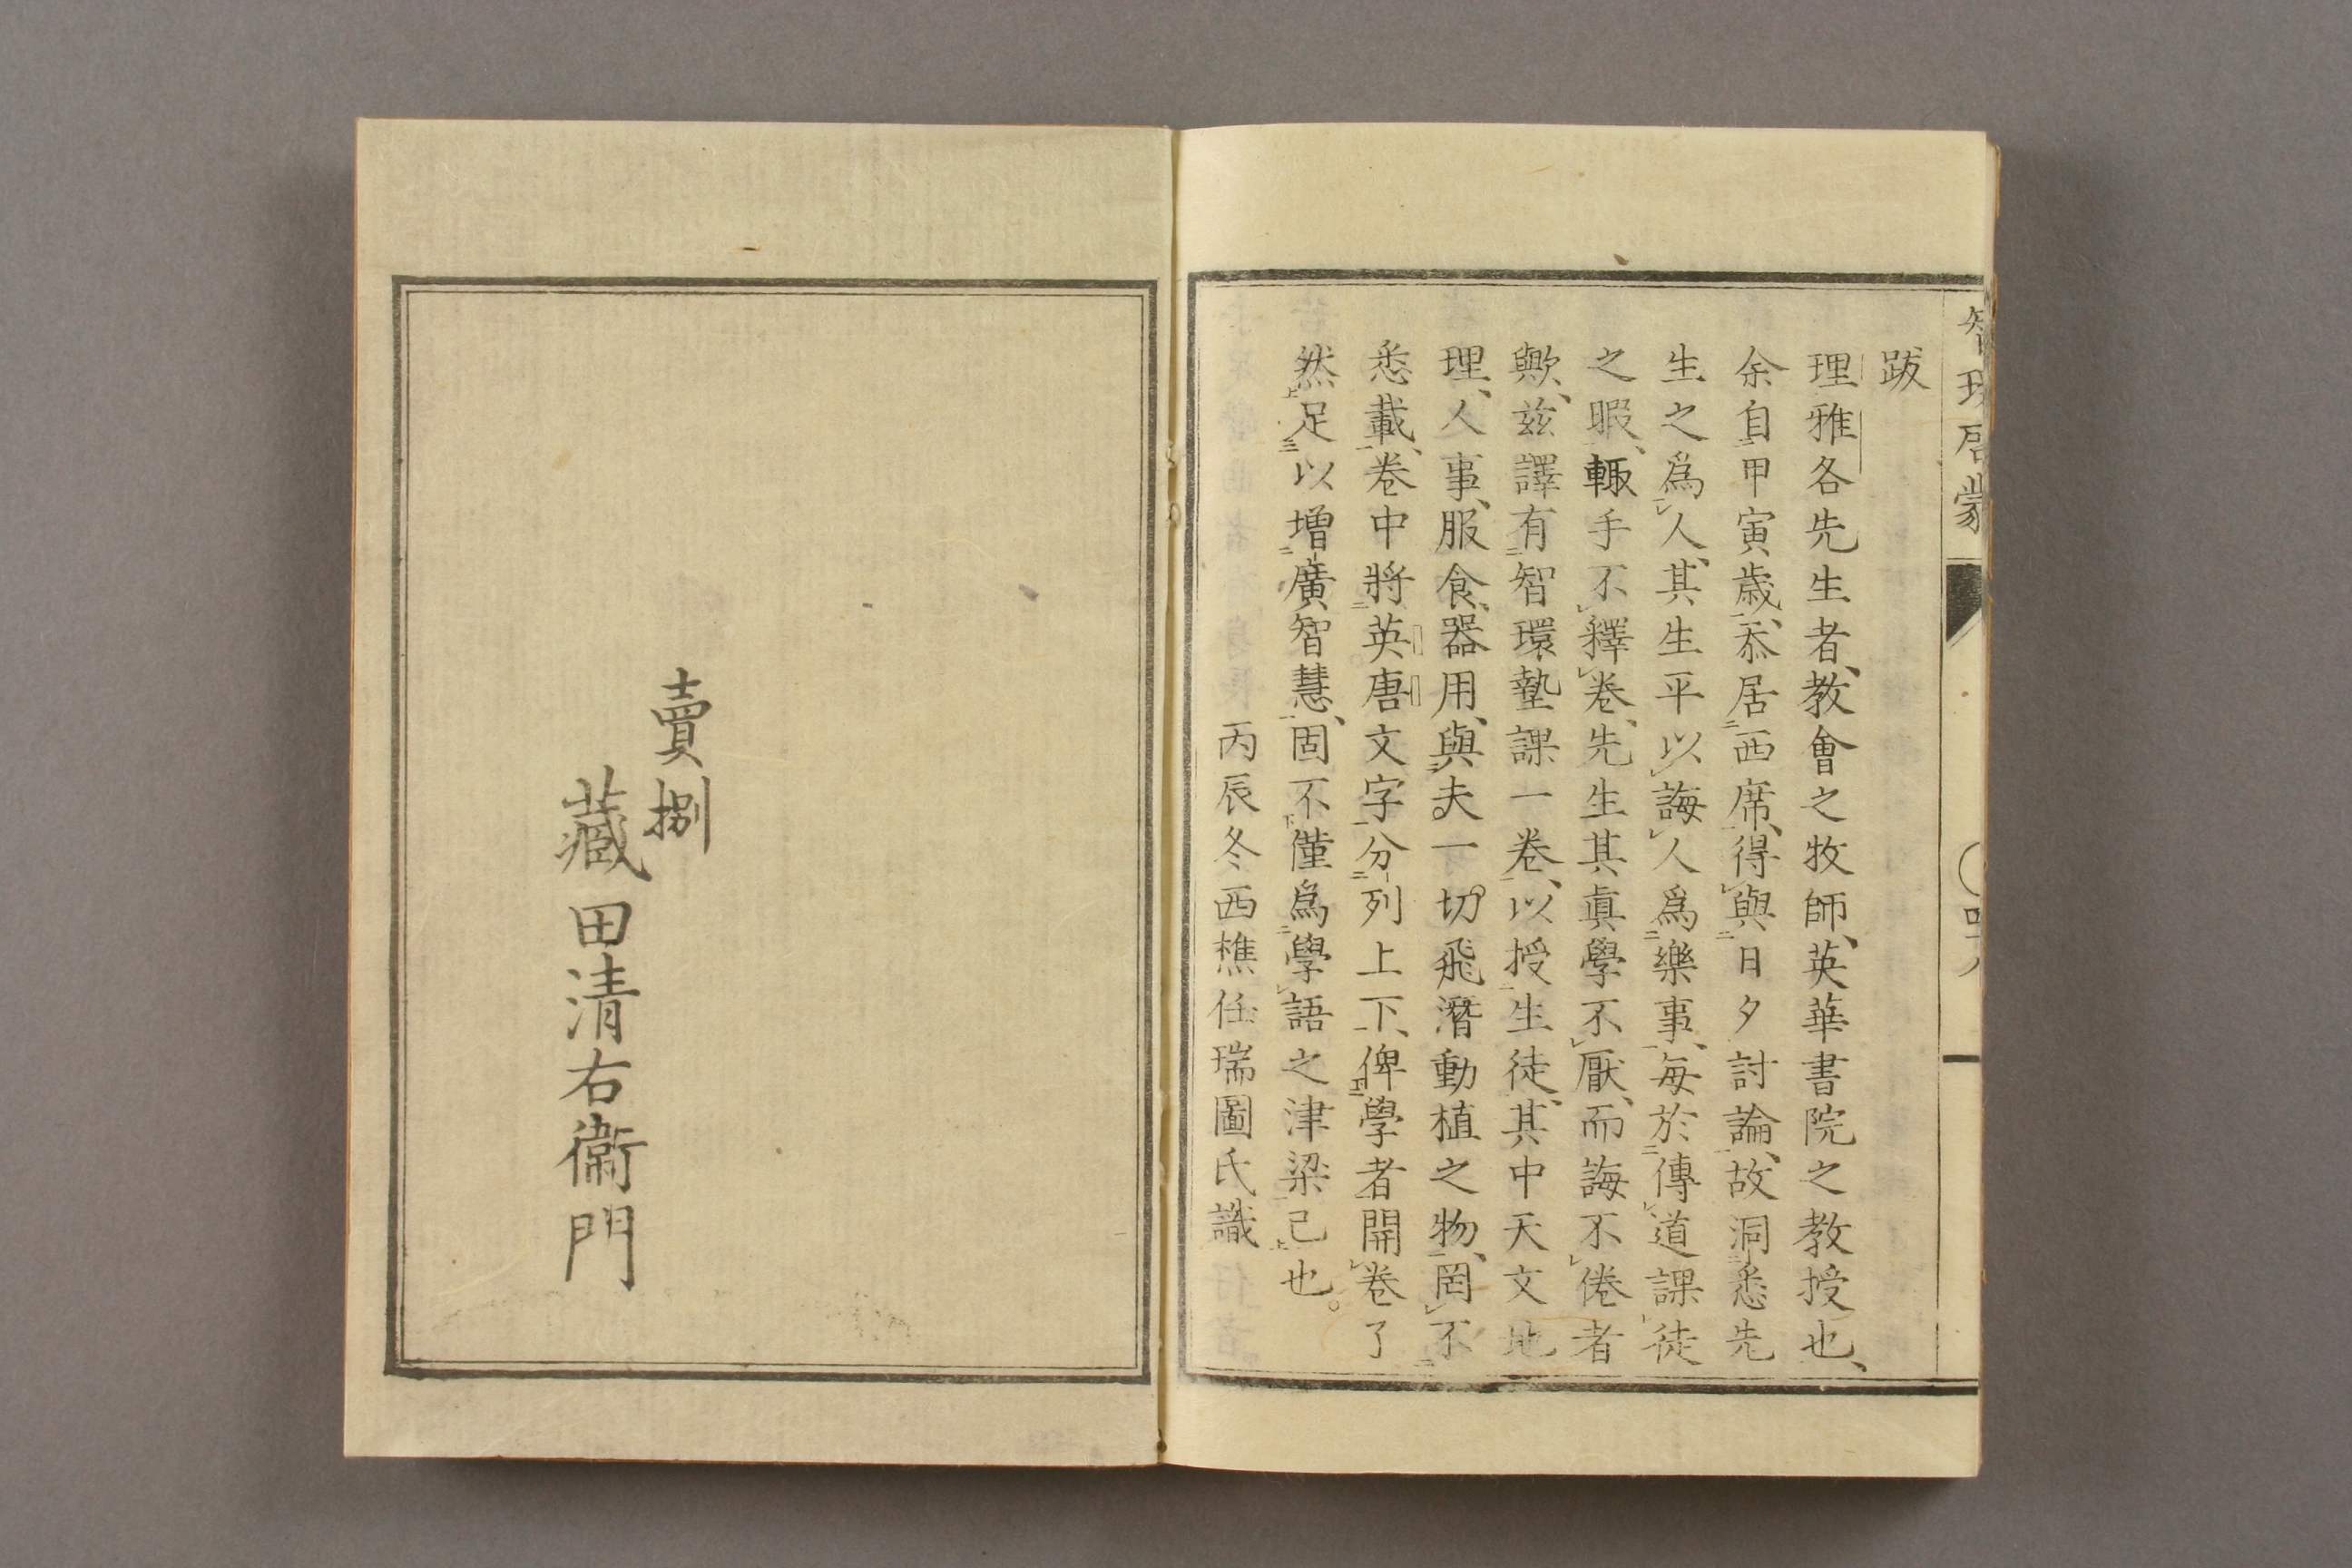 智環啓蒙
跋
理雅各先生者、教會之牧師、英華書院之教授也、
余自甲寅歲、忝居西席、得與日夕討論、故洞悉先
生之爲人、其生平以誨人爲樂事、每於傳道課徒
之暇、輙手不釋卷、先生其眞學不厭、而誨不倦者
歟、兹譯有智環塾課一卷、以授生徒、其中天文地
理、人事、服食、器用、與夫一切飛潛動植之物、罔不
悉載、卷中將英唐文字分列上下、俾學者開卷了
然足以增廣智慧、固不僅爲學語之津梁已也。
丙辰冬西樵任瑞圖氏識
賣捌
藏田清右衞門